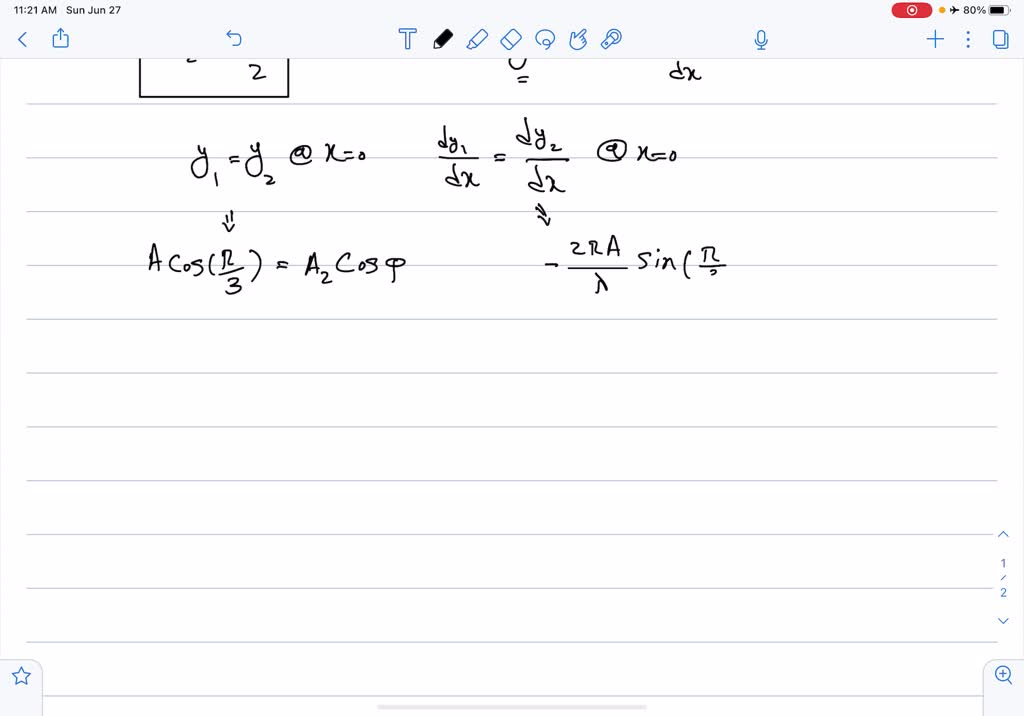 11:21 AM Sun Jun 27 80%
2 dx
y₁ = y₂ @ x=0 dy₁/dx = dy₂/dx @ x=0
⇓ ⇓
A Cos(π/3) = A₂ Cos φ - 2πA/λ Sin(π
1
/
2